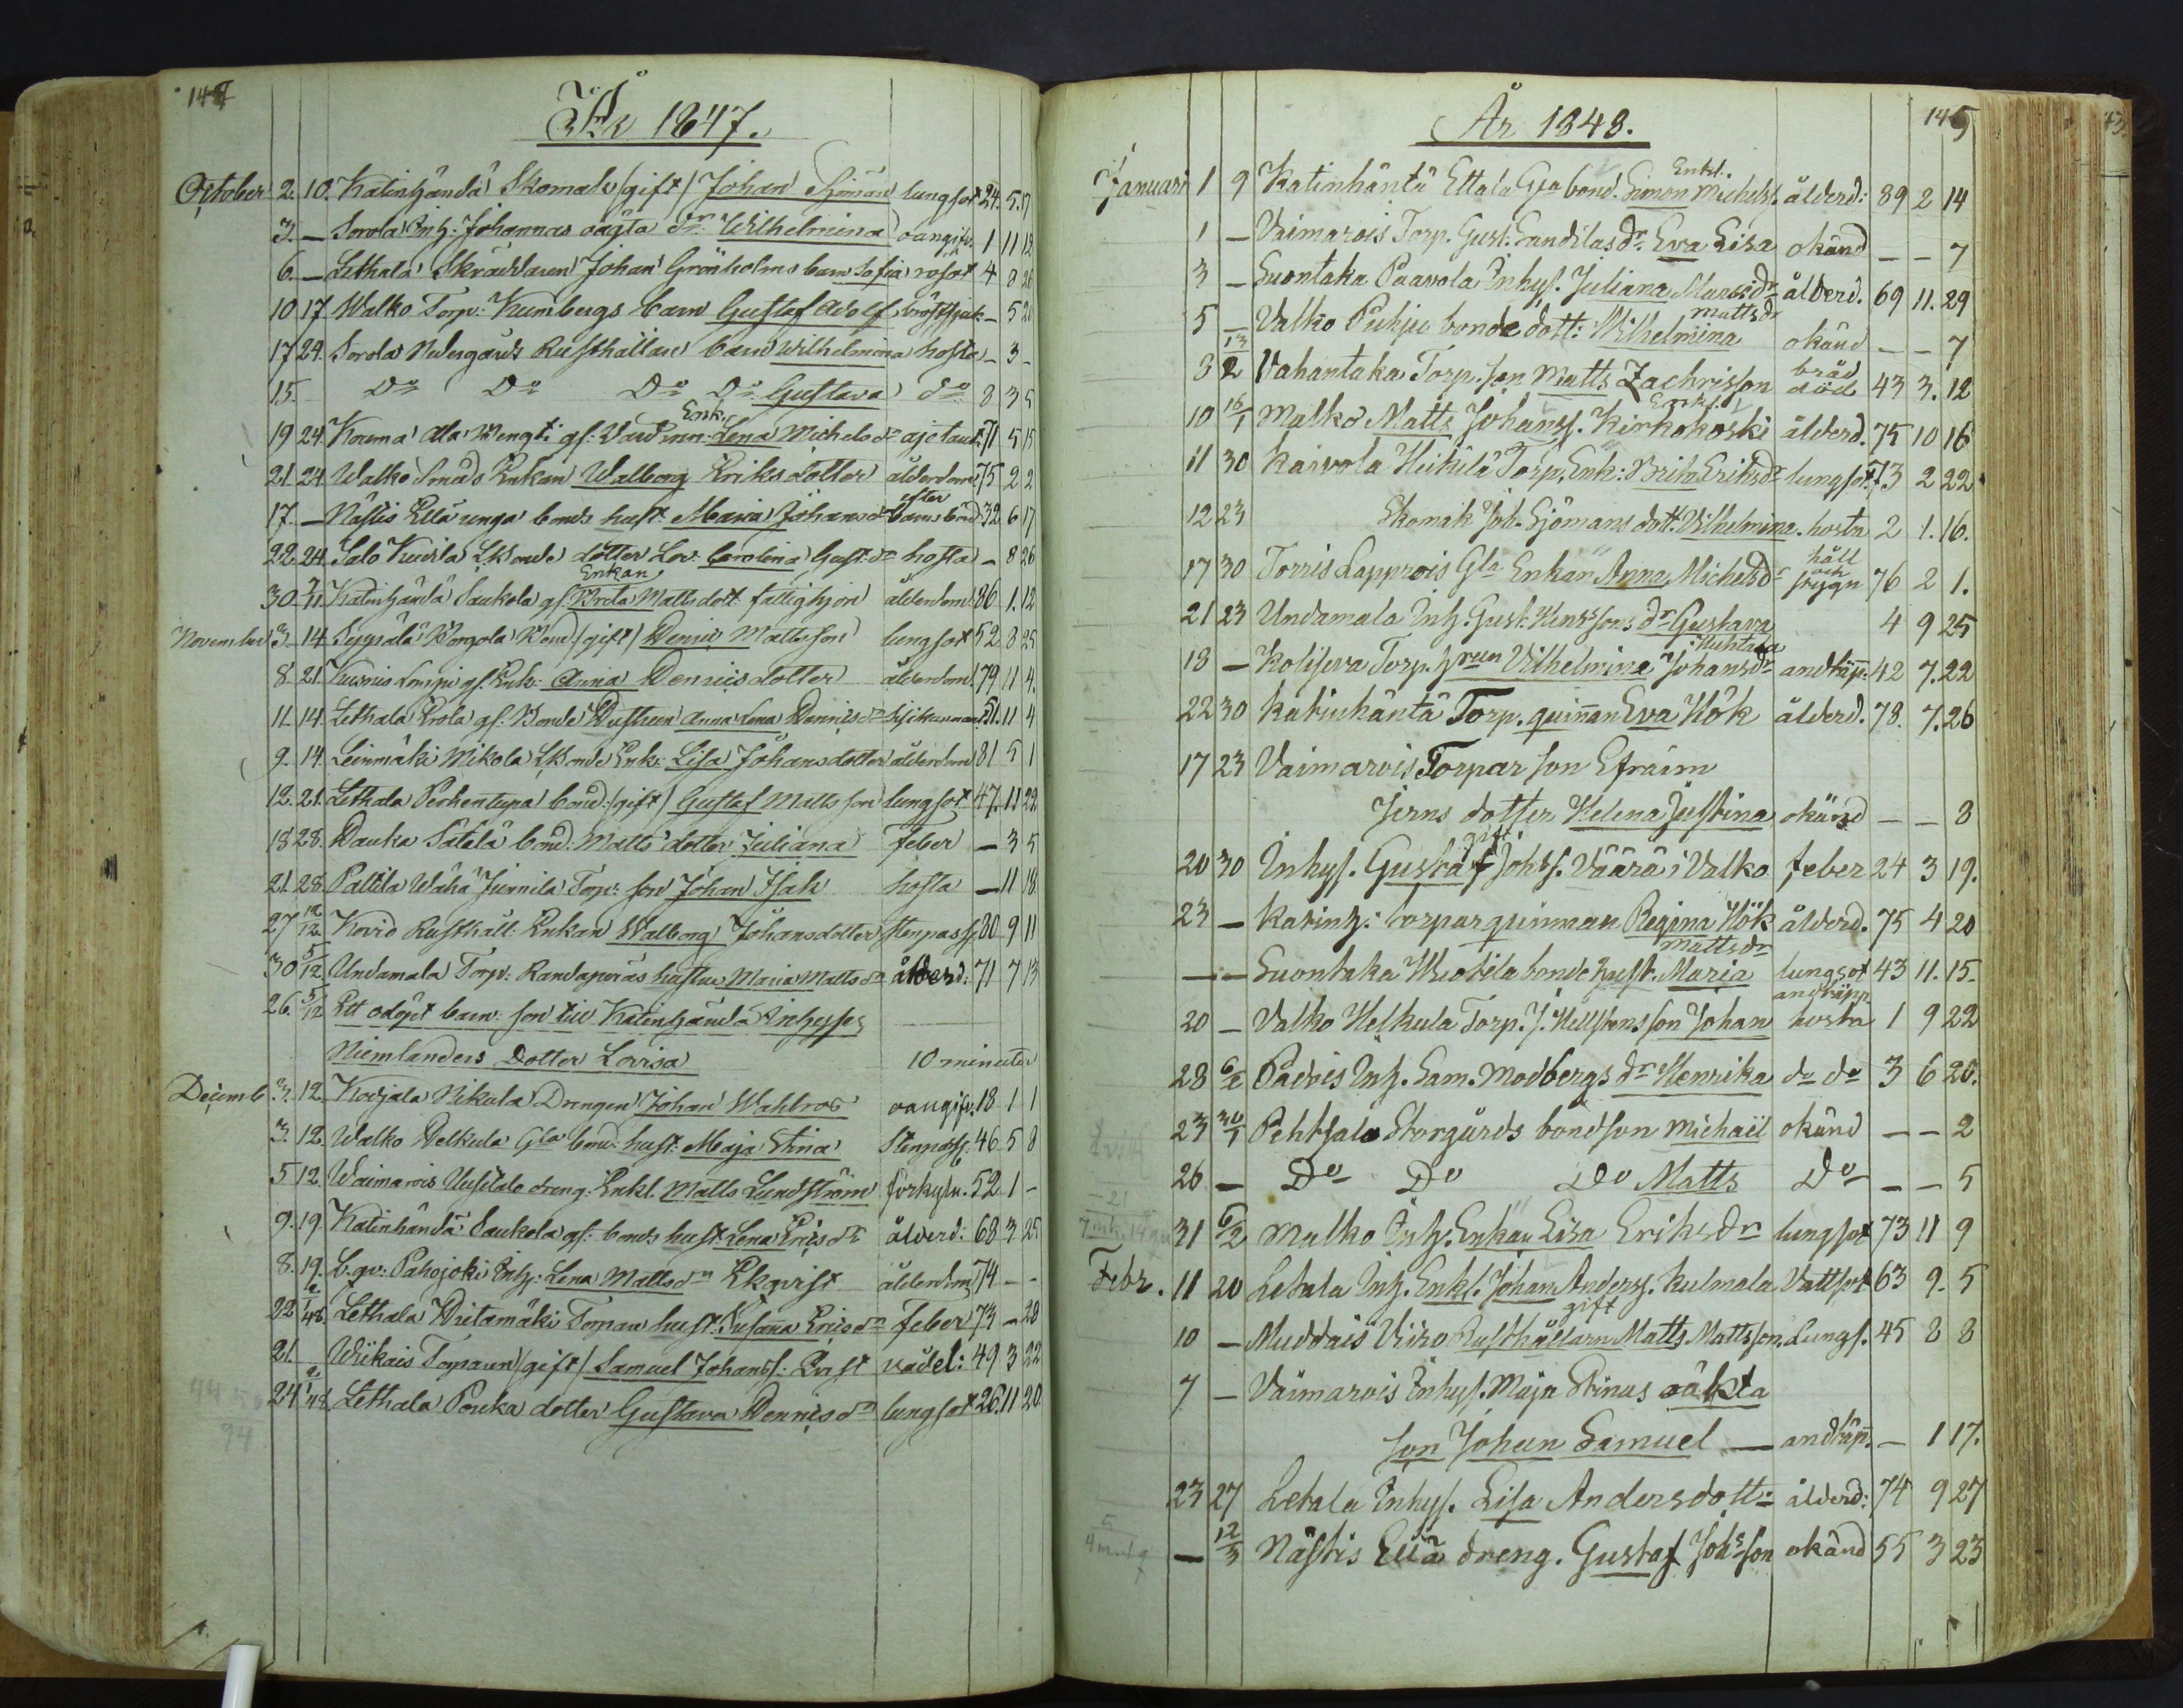 År 1847.
October 2. 10. Katinhändä Skomak. (gift) Johan Sjöman lungsot 24. 5. 17
3. — Sorola Inh: Johannas oägta dr. Wilhelmina oangifv. 1 11 12
6. — Lethala Skräddaren Johan Grönholms barn Sofia rosot 4 8 26
10 17 Walko Torp: Kumbergs barn Gustaf Adolf bröstsjuk — 5 20
17 24. Sorola Nedergårds Rusthållare barn Wilhelmina hosta — 3 —
15. Do Do Do Do Gustava do 8 3 5
Enk.
19 24. Kouma Ala Wengti gl: Värdinn: Lena Michels dr 71 5 15
21 24 Walko Smeds Enkan Walborg Eriks dotter ålderdom 75 2 2
efter
17. — Nästis Ellä unga bonds hust. Maria Johans dr barnsbörd 32 6 17
22. 24. Salo Kuusla LBonde dotter Lov: Carolina Gust. dr hosta — 8 26
Enkan
30. 7/11. Katinhändä Saukola gl. Brita Matts dott. fattighjon ålderdom 86 1. 12
November 3. 14. Seppälä Korgola Bond (gift) Dennis Mattsson lungsot 52 8 25
8. 21. gl. Enk: Anna Dennisdotter ålderdom 79 11 4.
11. 14. Lethala Erola gl. Bonde Hustrun Anna Lena Dennis dr 51. 11 4
9. 14. Leinmäki Mikola LBonde Enk: Lisa Johansdotter ålderdom 81 5 1
12. 21. Lethala Perhentupa bond: (gift) Gustaf Mattsson lungsot 47. 11 22
18 28. Dauka Sätälä bond: Matts dotter Juliana Feber — 3 5
21. 28. Paltila Wähä Junnila Torp: son Johan Isak hosta — 11 18
27 12/12 Kovio Rusthåll: Enkan Walborg Johansdotter stenpass. 80 9 11
30 5/12 Undamala Torp: Randaperäs hustru Maria Matts dr ålderd: 71 7 13
26. 5/12 Ett odöpt barn: son till Katinhändä Inhyses
Niemlanders Dotter Lovisa 10 minuter
Decemb 3. 12. Kodjala Nikula Drengen Johan Wahlroos oangifv. 18 1 1
3. 12. Walko Helkula Gla bond: hust: Maja Stina Stenpass. 46 5 8
5 12. Waimarois Uusitalo dreng: Enkl. Matts Lundström förkyln. 52 1 —
9. 19. Katinhändä Saukola gl: bonds hust. Lena Erics dr ålderd: 68 3 25
8. 19. L. gv: Pahojoki Inh: Lena Matts dr Ekqvist ålderdom 74 — —
22 2/1 48. Lethala Hietamäki Torpare hust: Susanna Erics dr feber 73 — 28
21. Wiikais Torparen (gift) Samuel Johans s: Qvist vådel: 49 3 22
24. 2/1 48. Lethala Pouka dotter Gustava Dennis dr lungsot 26. 11 20
94
År 1848.
145
Enkl.
Januari 1 9 Katinhäntä Ettala Gla bond. Simon Michelss. ålderd: 89 2 14
1 — Vaimarois Torp. Gust. Sandilas dr. Eva Lisa okänd — — 7
3 — Suontaka Paavola Inhys. Juliana Mårts dr ålderd. 69 11. 29
Matts dr
5 — Valko Puhju bonde dott: Wilhelmina okänd — — 7
bråd
3 13/2 Vahantaka Torp. son Matts Zachrisson död 43 3. 12
Enkl.
10 16/1 Malko Matts Johanss. Kirkokoski ålderd. 75 10 16
11 30 Kaivola Heikilä Torp. Enk: Brita Eriks dr lungsot 73 2 22
12 23 Skomak Joh. Sjömans dott. Vilhelmina. hosta 2 1. 16.
håll
och
17 30 Torris Lapprois Gla Enkan Anna Michels dr stygn 76 2 1.
21 23 Undamala Inh. Gust. Henrssons dr Gustava 4 9 25
Huhtala
18 — Kolijeva Torp. hrun Vilhelmina Johans dr andtäp. 42 7. 22
22 30 Katinhäntä Torp. quinnan Eva Hök ålderd. 78. 7. 26
17 23 Vaimarois Torpar son Efraim
Jerns dotter Helena Justina okänd — — 8
gift
20 30 Inhys. Gustaf Johss. Väärä i Valko feber 24 3 19.
23 — Katinh: torparquinnan Regina Hök ålderd. 75 4 20
Matts dr
— — Suontaka Uotila bonde hust. Maria lungsot 43 11. 15.
andtäpp
20 — Valko Helkula Torp. J. Hellstens son Johan hosta 1 9 22
28 6/2 Padois Inh. Sam. Modbergs dr Henrika do do 3 6 20.
23 30/1 Pehtsalo Storgårds bondson Michaël okänd — — 2
26 — Do Do Do Matts Do — — 5
31 6/2 Malko Inh. Enkan Lisa Eriks dr lungsot 73 11 9
Febr. 11 20 Letala Inh. Enkl. Johan Anderss. Kulmala Vattsot 63 9. 5
gift
10 — Muddais Viiro Rusthållarn Matts Mattsson. Lungs. 45 8 8
7 — Vaimarois Inhys. Maja Stinas oäkta
son Johan Samuel — andtäp. — 1 17.
23 27 Letala Inhys. Lisa Andersdott: ålderd: 74 9 27
— 12/3 Nästis Ellä dreng. Gustaf Johsson okänd 55 3 23